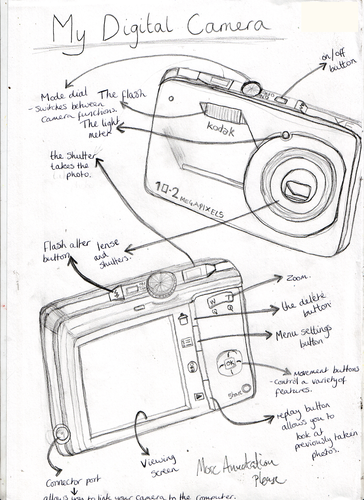 My Digital Camera
on/off
button
Mode dial
- Switches between
camera functions.
The flash
The light
meter
kodak
the shutter
takes the
photo.
10.2 MEGAPIXELS
Flash alter
button
lense
and
shutters.
Zoom.
W
the delete
button
Menu settings
button
OK
Movement buttons
- control a variety of
features.
Share
replay button
allows you to
look at
previously taken
photos.
Viewing
screen
More Annotation
Please
Connector port
allows you to link your camera to the computer.